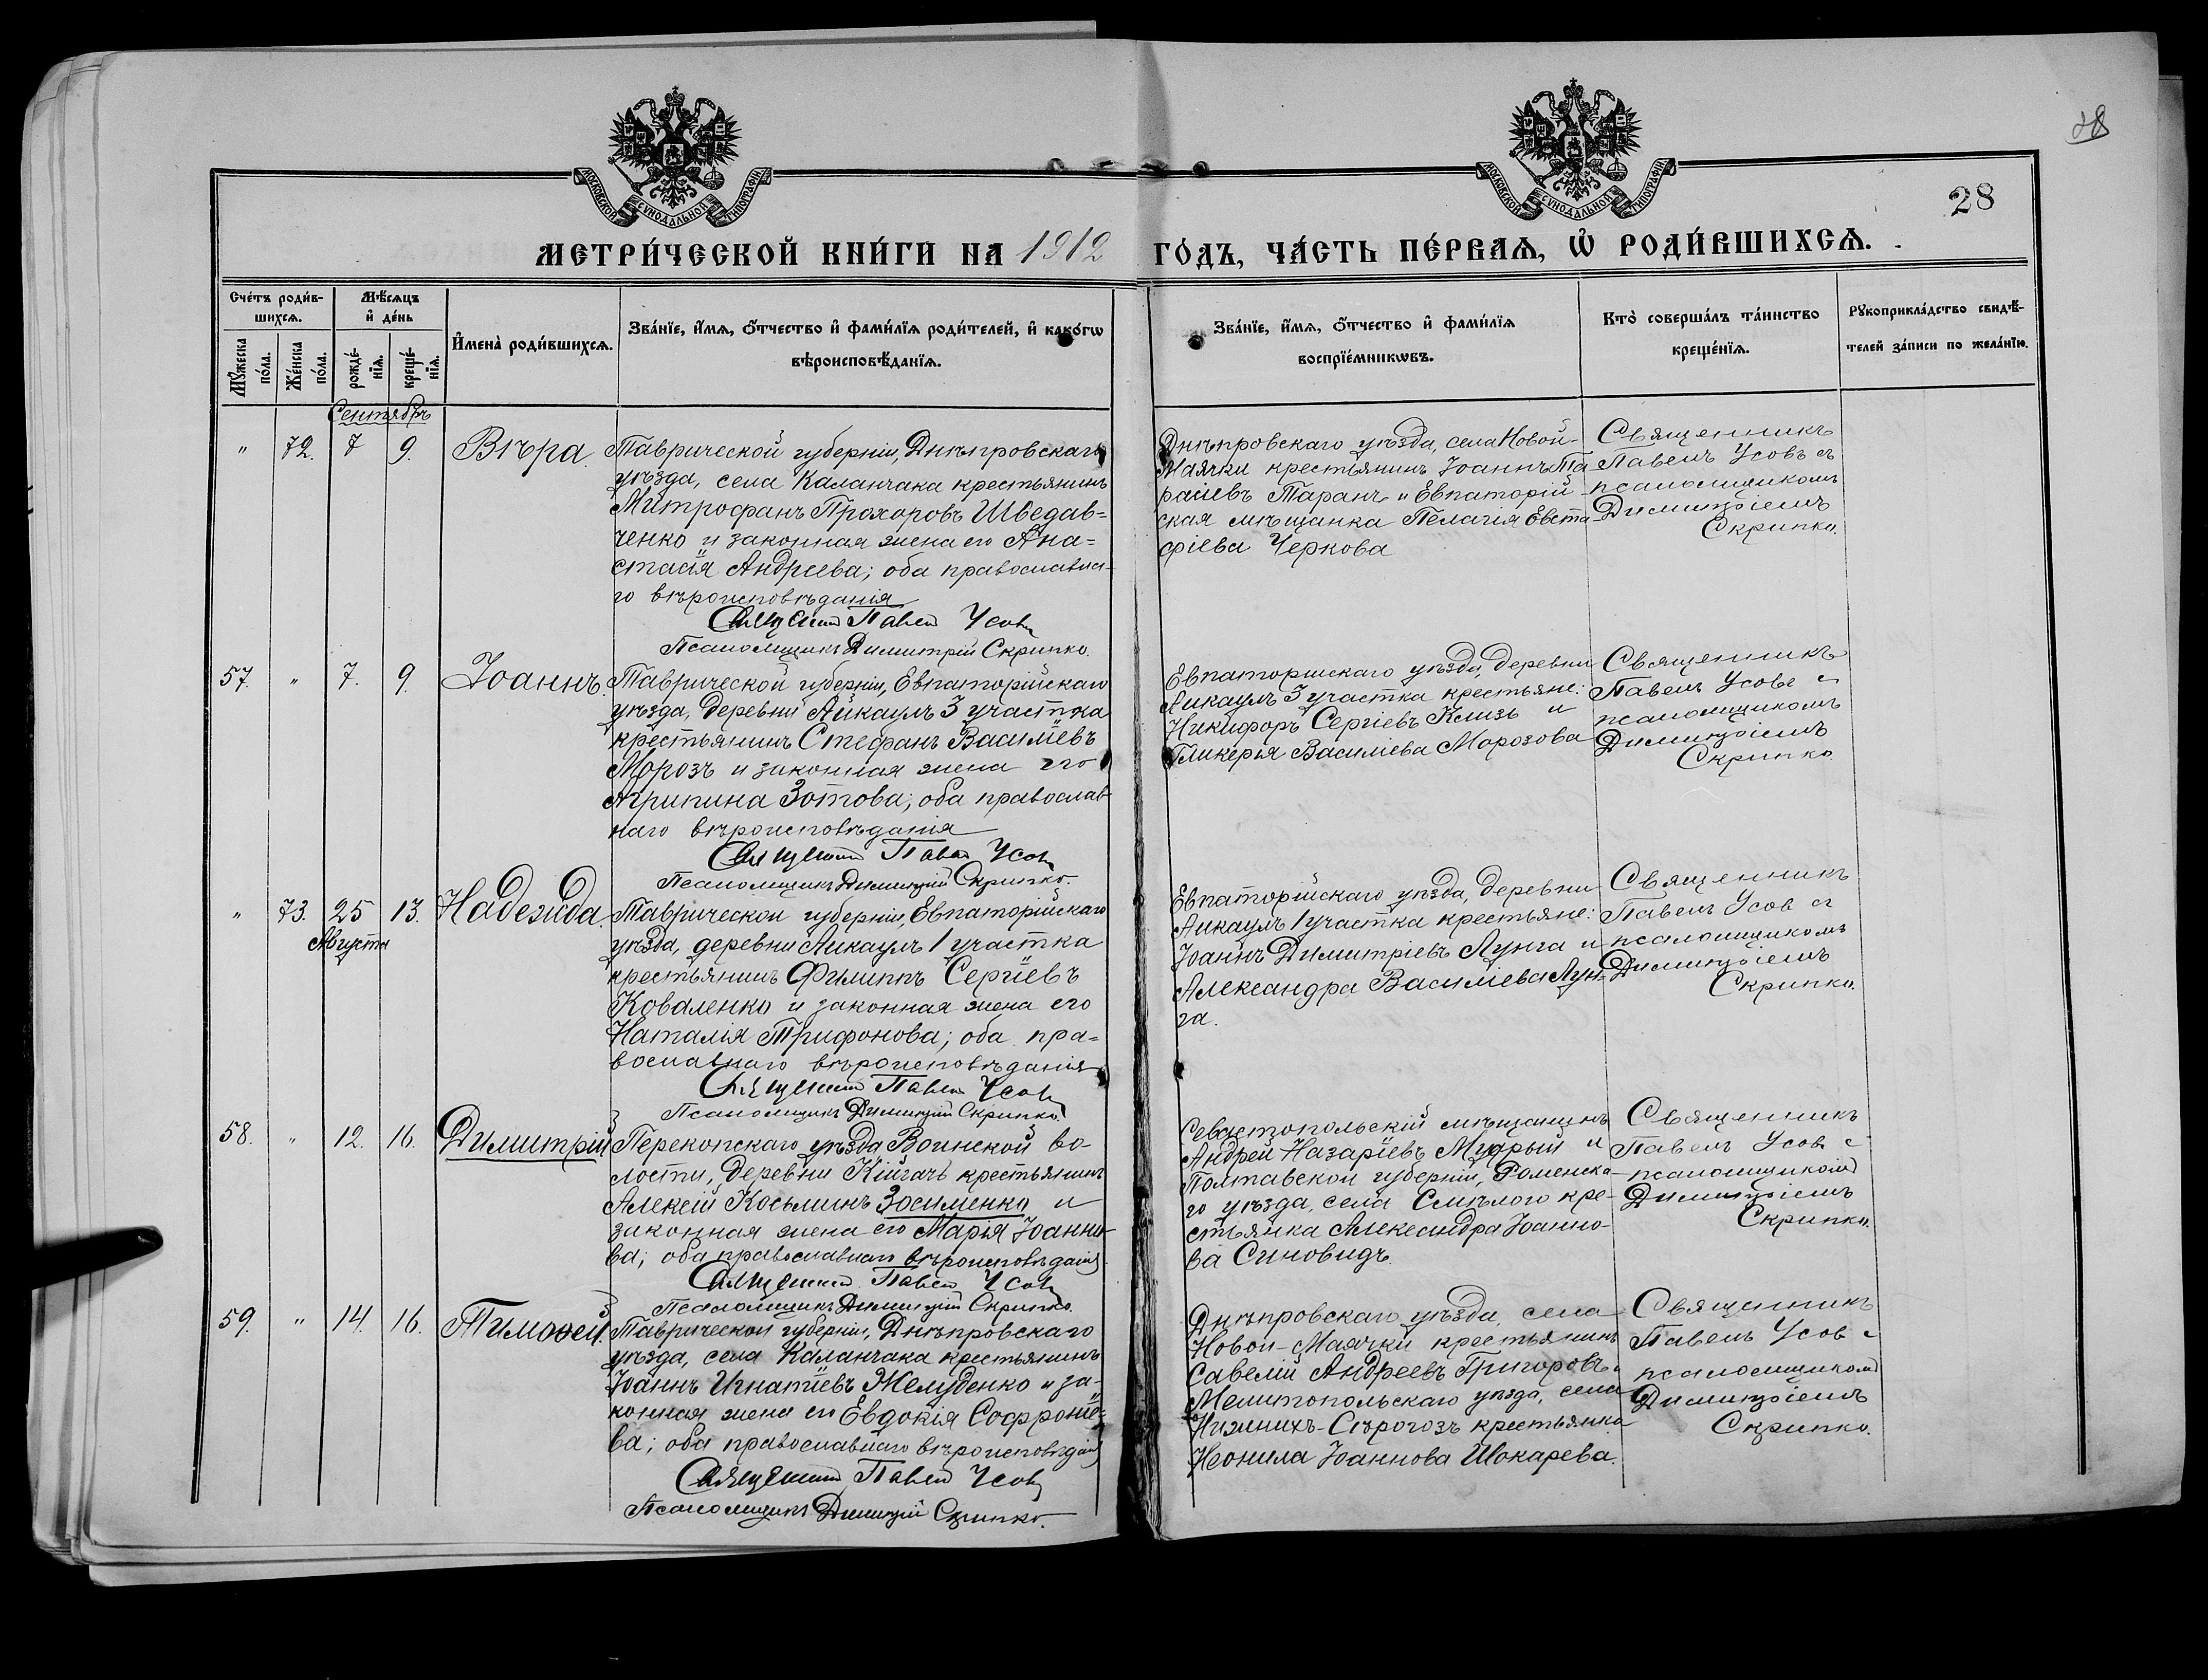 28
28
МОСКОВСКОЙ СѴНОДАЛЬНОЙ ТИПОГРАФІИ
МОСКОВСКОЙ СѴНОДАЛЬНОЙ ТИПОГРАФІИ
МЕТРИ́ЧЕСКОЙ КНИ́ГИ НА 1912 ГО́ДЪ, ЧА́СТЬ ПЕ́РВАѦ, Ѡ҆ РОДИ́ВШИХСѦ.
Сче́тъ роди́в-
шихсѧ.
Мѣ́сѧцъ
и҆ де́нь
Мꙋ́жеска
по́ла.
Же́нска
по́ла.
рожде́-
нїѧ.
креще́-
нїѧ.
И҆мена̀ роди́вшихсѧ.
Зва́нїе, и҆́мѧ, ѻ҆́тчество и҆ фами́лїѧ роди́телей, и҆ како́гѡ
вѣроисповѣ́данїѧ.
Зва́нїе, и҆́мѧ, ѻ҆́тчество и҆ фами́лїѧ
воспрїе́мникѡвъ.
Кто̀ соверша́лъ та́инство
креще́нїѧ.
Рꙋкоприкла́дство свидѣ́-
телей за́писи по жела́нїю.
Сентябрь
" 72. 7 9. Вѣра.
Таврической губерніи, Днѣпровскаго
уѣзда, села Каланчака крестьянинъ
Митрофанъ Прохоровъ Шведав=
ченко и законная жена его Ана=
стасія Андреева; оба православна-
го вѣроисповѣданія
Священникъ Павелъ Усовъ
Псаломщикъ Димитрій Скрипко.
Днѣпровскаго уѣзда, села Новой-
Маячки крестьянинъ Іоаннъ Та
расіевъ Таранъ и Евпаторій
ская мѣщанка Пелагія Евста
фіева Черкова
Священникъ
Павелъ Усовъ съ
псаломщикомъ
Димитріемъ
Скрипко.
57. " 7. 9. Іоаннъ.
Таврической губерніи, Евпаторійскаго
уѣзда, деревни Айкаулъ 3 участка
крестьянинъ Стефанъ Василіевъ
Морозъ и законная жена его
Агрипина Зотова; оба православ-
наго вѣроисповѣданія
Священникъ Павелъ Усовъ
Псаломщикъ Димитрій Скрипко.
Евпаторійскаго уѣзда, деревни
Аикаулъ 3 участка крестьяне:
Никифоръ Сергіевъ Клизь и
Гликерія Василіева Морозова
Священникъ
Павелъ Усовъ съ
псаломщикомъ
Димитріемъ
Скрипко
" 73. 25 13. Надежда.
Августа
Таврической губерніи, Евпаторійскаго
уѣзда, деревни Аикаулъ 1 участка
крестьянинъ Филиппъ Сергіевъ
Коваленко и законная жена его
Наталія Трифонова; оба пра=
вославнаго вѣроисповѣданія
Священникъ Павелъ Усовъ
Псаломщикъ Димитрій Скрипко.
Евпаторійскаго уѣзда, деревни
Аикаулъ 1 участка крестьяне:
Іоаннъ Димитріевъ Лунга и
Александра Василіева Лун-
га.
Священникъ
Павелъ Усов съ
псаломщикомъ
Димитріемъ
Скрипко.
58. " 12. 16. Димитрій
Перекопскаго уѣзда Воинской во-
лости, деревни Кійгачъ крестьянинъ
Алексій Косьминъ Зосименко и
законная жена его Марія Іоанно-
ва; оба православнаго вѣроисповѣданія
Священникъ Павелъ Усовъ
Псаломщикъ Димитрій Скрипко.
Севастопольскій мѣщанинъ
Андрей Назаріевъ Мудрый и
Полтавской губерніи, Роменска-
го уѣзда, села Смѣлого кре-
стьянка Александра Іоанно-
ва Синовидъ.
Священникъ
Павелъ Усов с
псаломщикомъ
Димитріемъ
Скрипко.
59. " 14. 16. Тимоѳей.
Таврической губерніи, Днѣпровскаго
уѣзда, села Каланчака крестьянинъ
Іоаннъ Игнатіевъ Желуденко и за-
конная жена его Евдокія Софроніе-
ва; оба православнаго вѣроисповѣданія
Священникъ Павелъ Усовъ
Псаломщикъ Димитрій Скрипко.
Днѣпровскаго уѣзда, села
Новой-Маячки крестьянинъ
Савелій Андреевъ Григоровъ и
Мелитопольскаго уѣзда, села
Нижнихъ-Сѣрогозъ крестьянка
Неонила Іоаннова Шокарева.
Священникъ
Павелъ Усов с
псаломщикомъ
Димитріемъ
Скрипко.